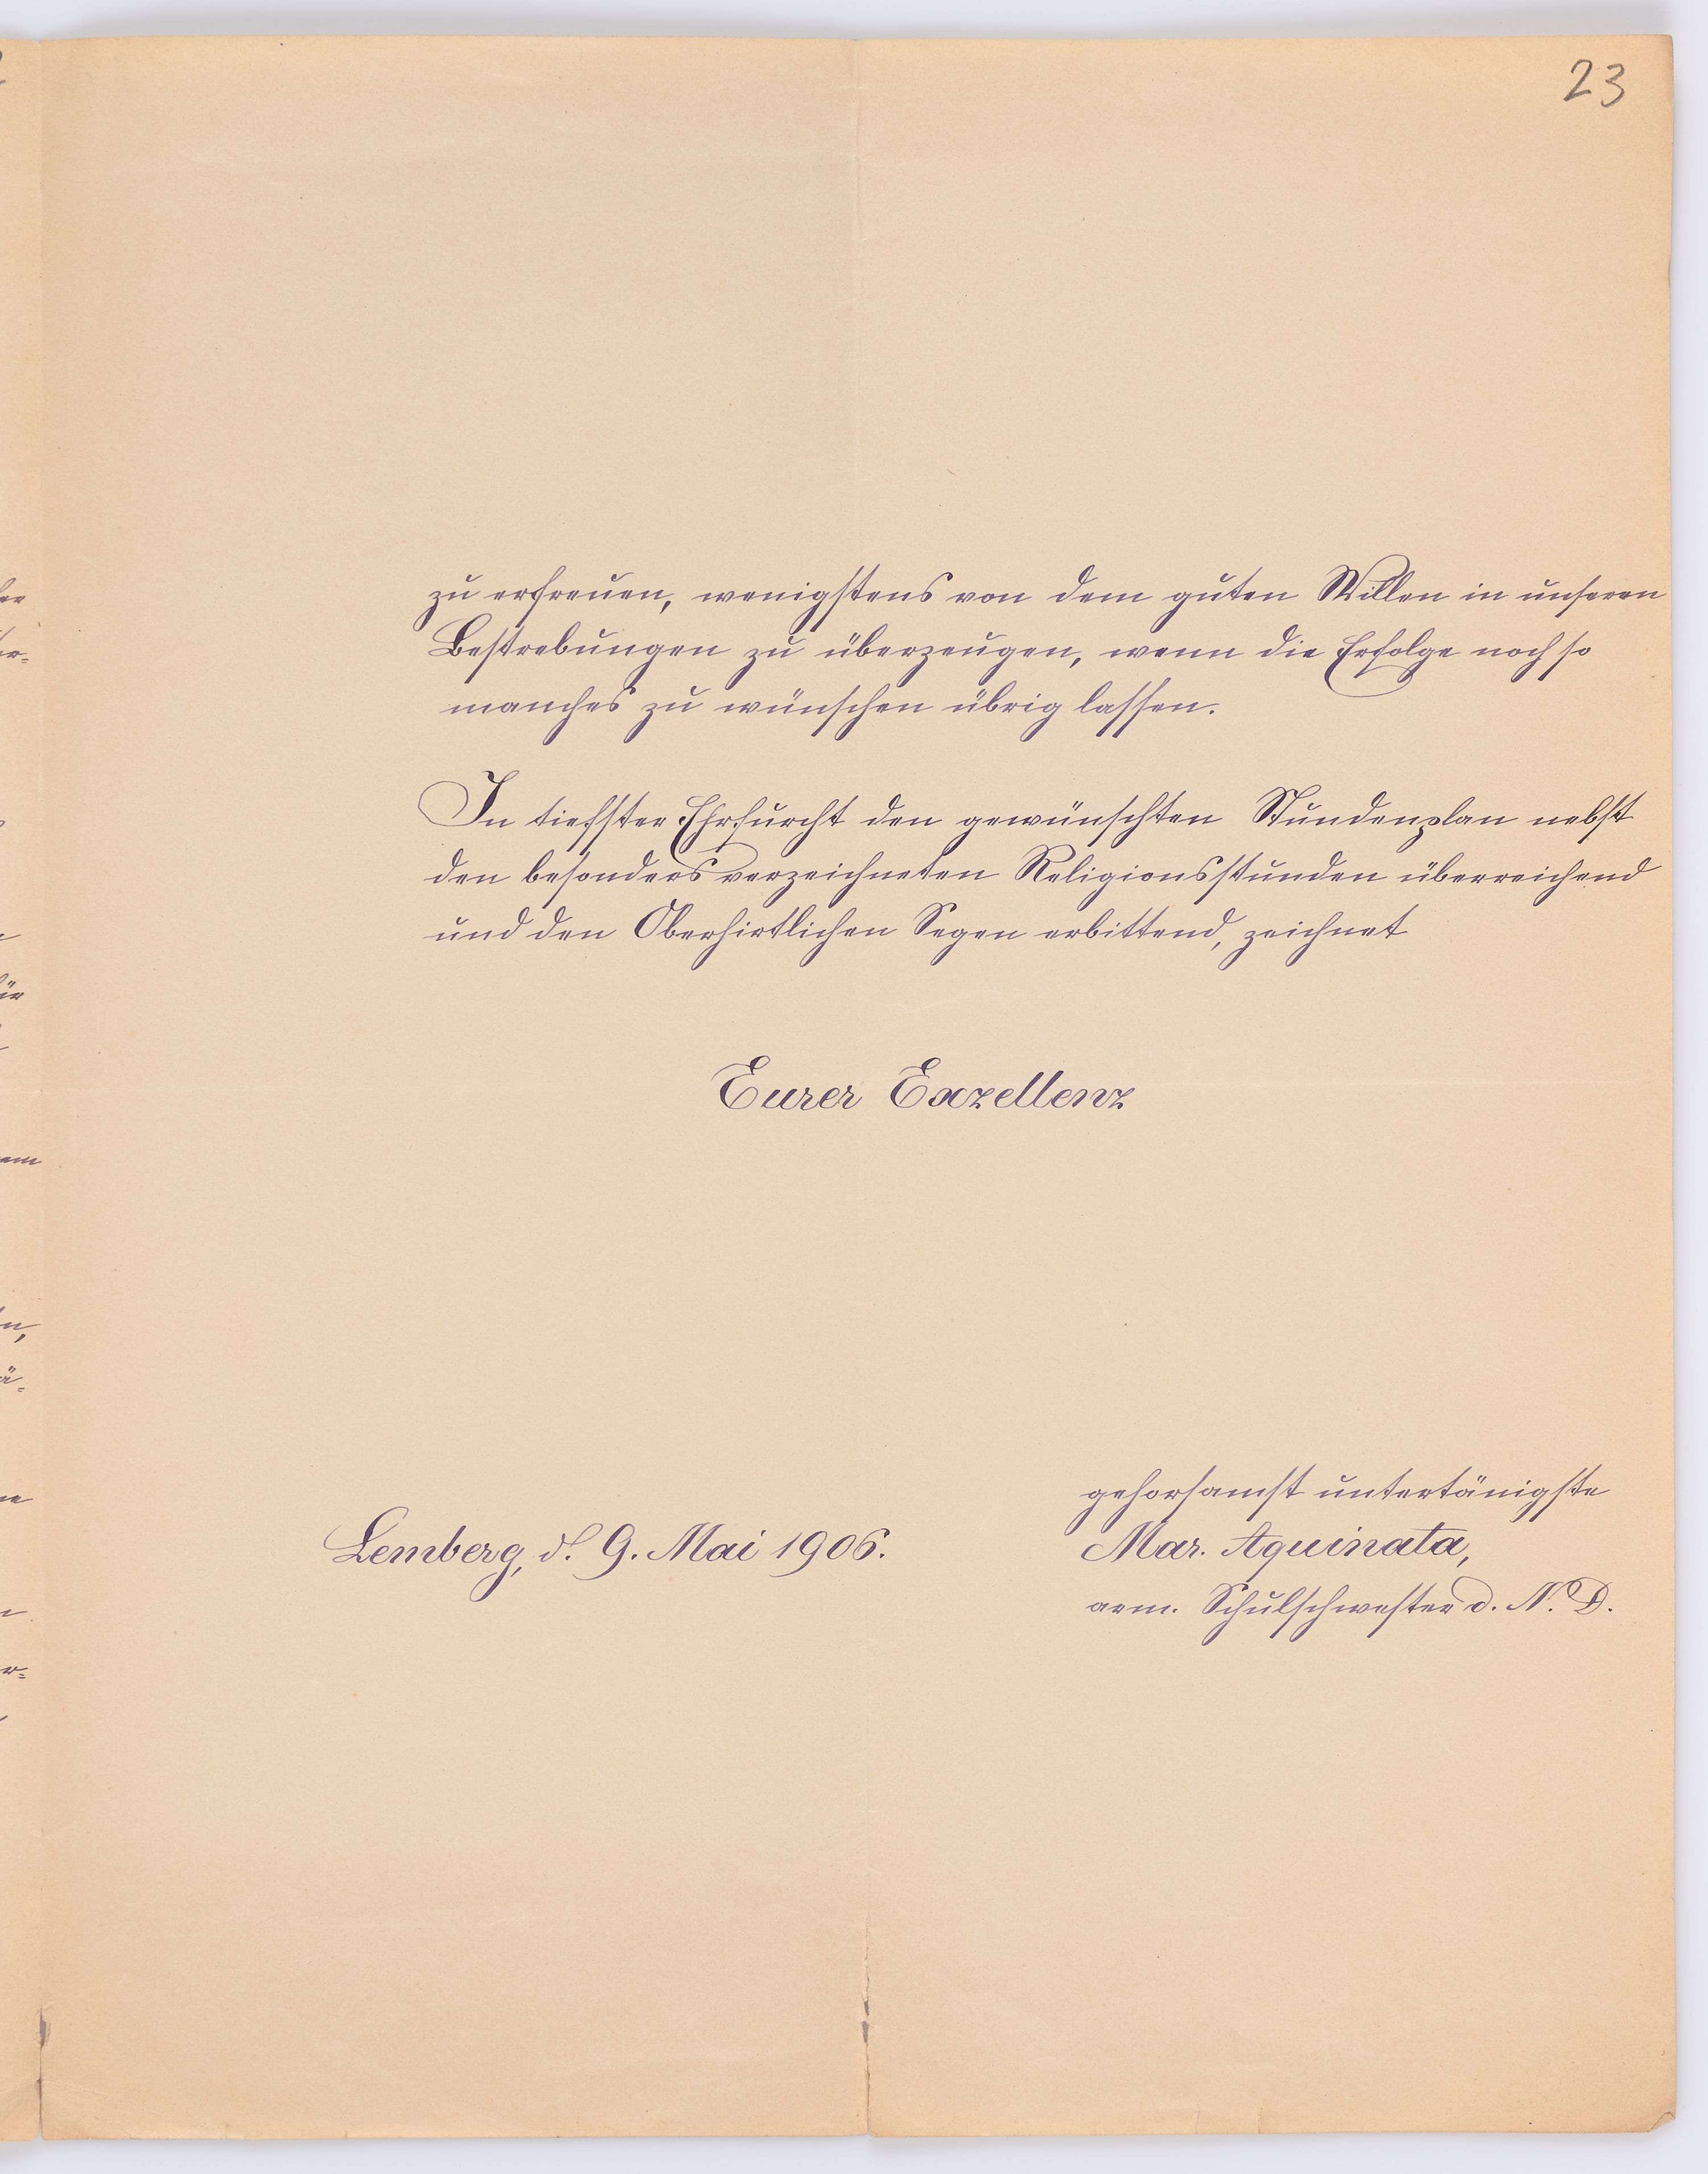 23
zu erfreuen, wenigstens von dem guten Willen in unseren
Bestrebungen zu überzeugen, wenn die Erfolge noch so
manches zu wünschen übrig lassen.
In tiefster Ehrfurcht den gewünschten Stundenplan nebst
den besonders verzeichneten Religionsstunden überreichend
und den Oberhirtlichen Segen erbittend, zeichnet
Eurer Exzellenz
gehorsamst untertänigste
Lemberg, d. 9. Mai 1906.
Mar. Aquinata,
arm. Schulschwester d. N. D.